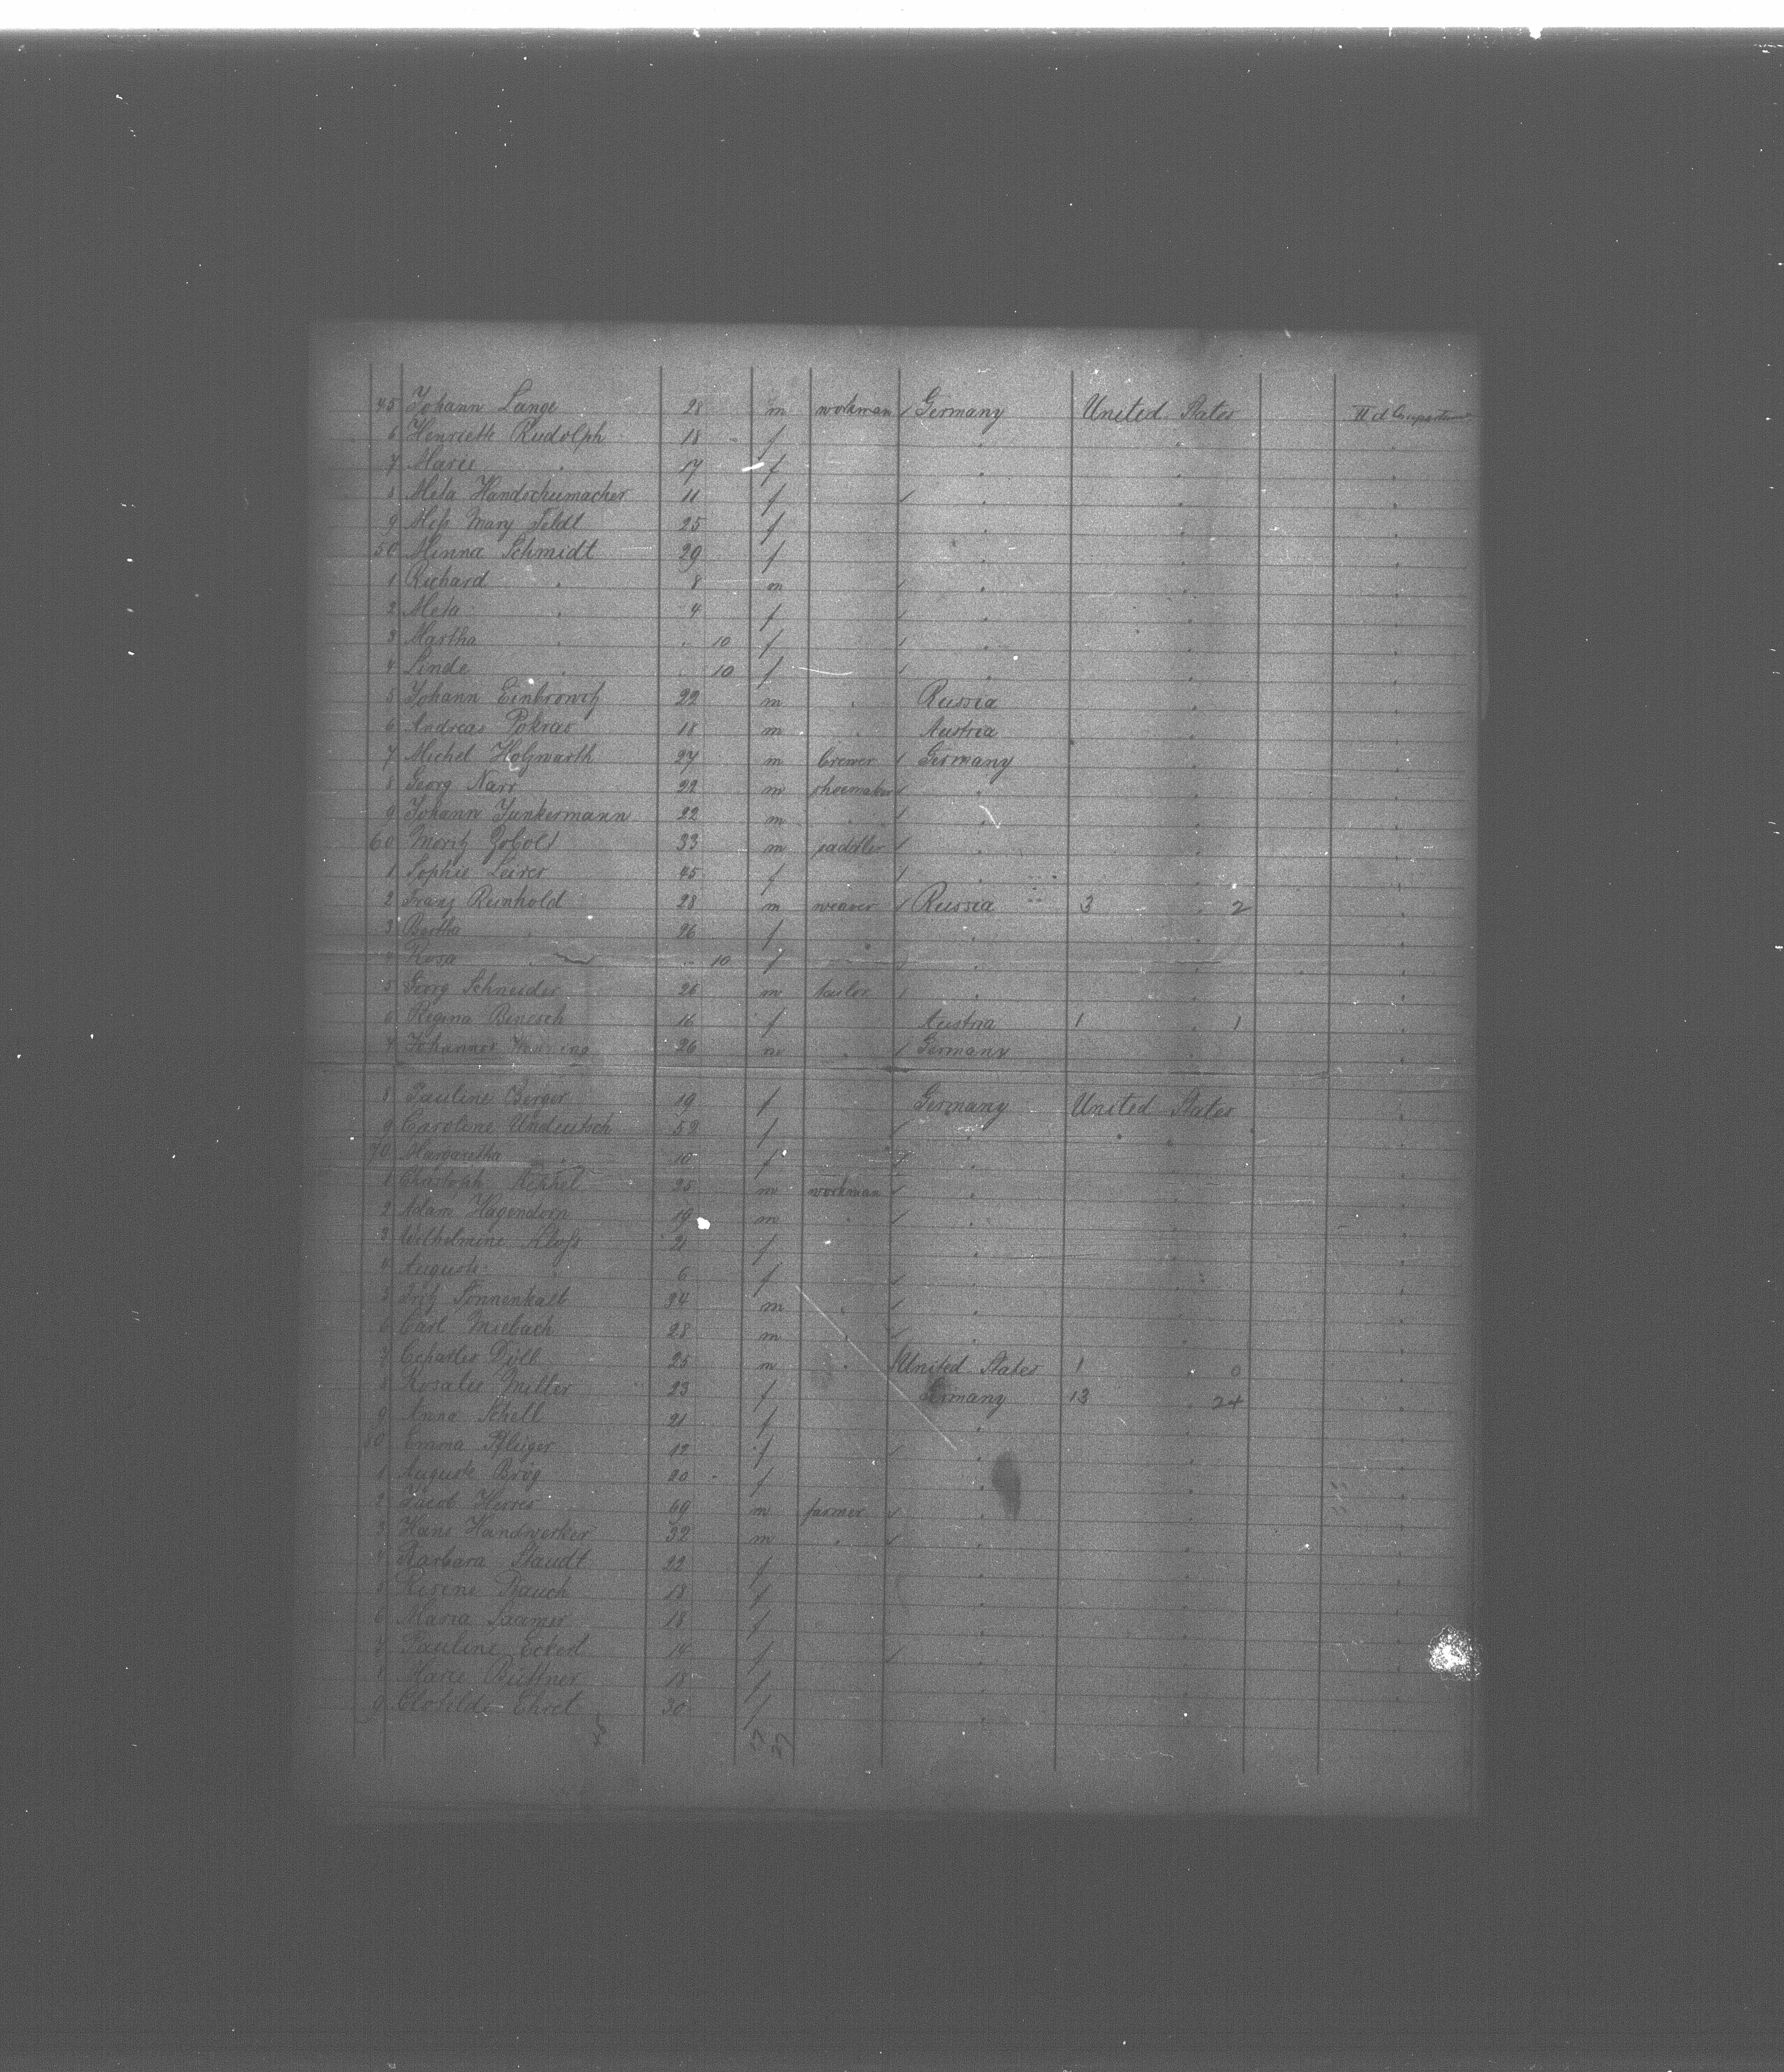 45 Johann Lange 28 m workman / Germany United States II d Compartment
6 Henriette Rudolph 18 f " " "
7 Marie " 17 f " " "
8 Meta Handschumacher 11 f / " " "
9 Miss Mary Feldt 25 f " " "
50 Minna Schmidt 29 f " " "
1 Richard " 8 m / " " "
2 Meta " 4 f / " " "
3 Martha " .. 10 f / " " "
4 Linde " .. 10 f / " " "
5 Johann 22 m " Russia " "
6 Andreas Pokras 18 m " Austria " "
7 Michel Holzwarth 27 m brewer / Germany " "
8 Georg Narr 22 m shoemaker / " " "
9 Johann Junkermann 22 m " / " " "
60 Moritz Zobolt 33 m saddler / " " "
1 Sophie Leirer 45 f / " " "
2 Franz Reinhold 28 m weaver / Russia 3 " 2 "
3 Bertha " 26 f " " "
4 Rosa " .. 10 f / " " "
5 Georg Schneider 26 m tailor / " " "
6 Regina Binesch 16 f Austria 1 " 1 "
7 Johannes 26 m " / Germany " "
8 Pauline Berger 19 f Germany United States "
9 Caroline Undeutsch 52 f / " " "
70 Margaretha " 10 f / " " "
1 Christoph 25 m workman / " " "
2 Adam Hagendorn 19 m " / " " "
3 Wilhelmine Kloss 21 f " " "
4 Auguste " 6 f / " " "
5 Fritz Sonnenkalb 34 m " / " " "
6 Carl Miebach 28 m " / " " "
7 Charles Döll 25 m " / United States 1 " 0 "
8 Rosalie Miller 23 f Germany 13 " 24 "
9 Anna Schell 21 f " " "
80 Emma Pfleiger 12 f / " " "
1 Auguste Brög 20 f " " "
2 Jacob Herres 69 m farmer / " " "
3 Hans Handwerker 32 m " / " " "
4 Barbara Staudt 22 f " " "
5 Rauch 18 f " " "
6 Maria 18 f " " "
7 Pauline Eckert 14 f / " " "
8 Marie Büttner 18 f " " "
9 Clotilde Ehret 30 f " " "